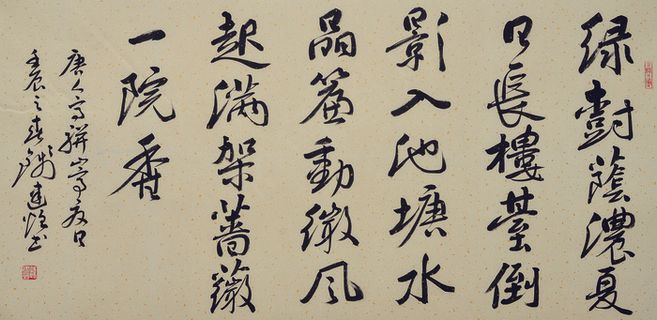 绿樹蔭濃夏
日長樓臺倒
影入池塘水
晶簾動微风
起滿架薔薇
一院香
唐人高駢山亭夏日
壬辰之春建书